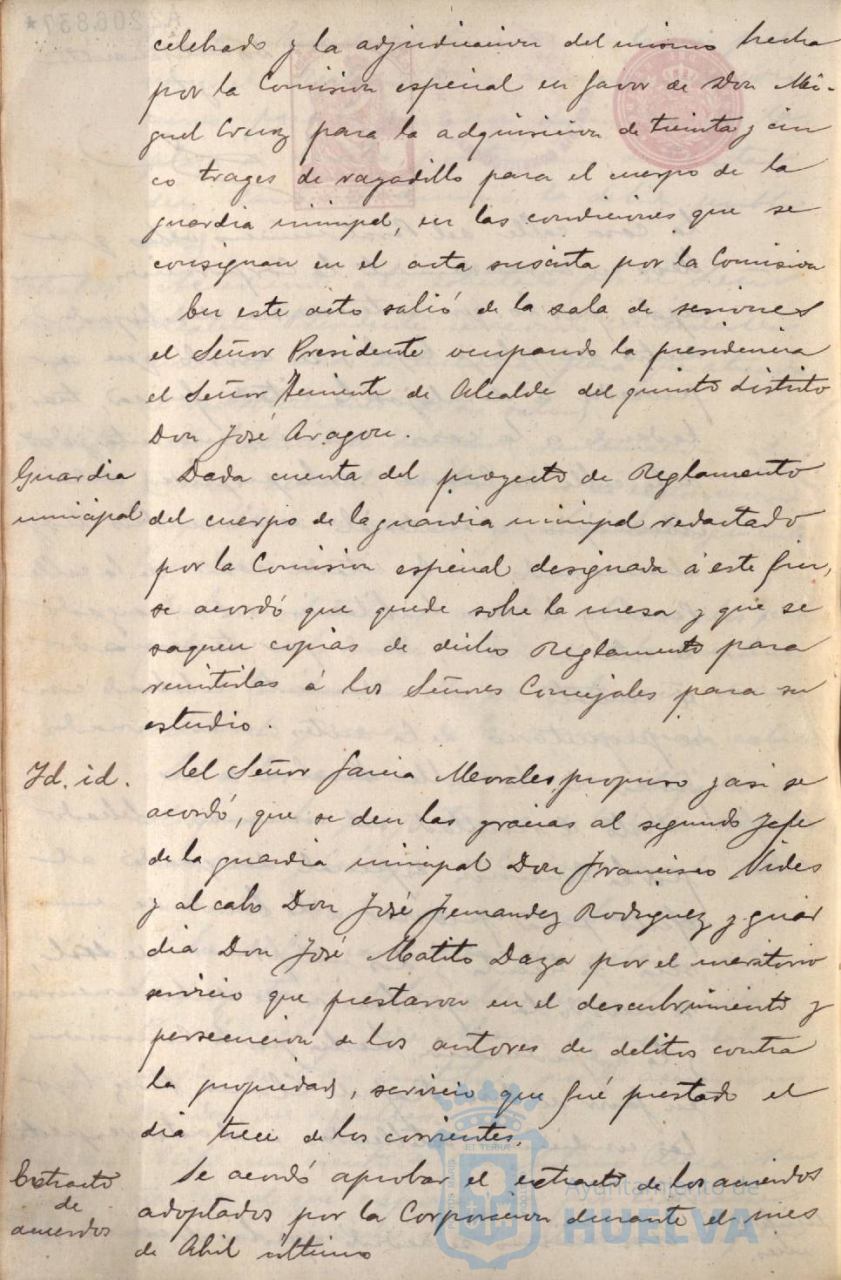 celebrado y la adjudicacion del mismo hecha
por la Comision especial en favor de Don Mi-
guel Cruz para la adquisicion de treinta y cin
co trages de rayadillo para el cuerpo de la
guardia municipal, en las condiciones que se
consignan en el acta suscrita por la Comision
En este acto salió de la sala de sesiones
el Señor Presidente ocupando la presidencia
el Señor Teniente de Alcalde del quinto distrito
Don José Aragon.
Guardia
municipal
Dada cuenta del proyecto de Reglamento
del cuerpo de la guardia municipal redactado
por la Comision especial designada á este fin,
se acordó que quede sobre la mesa y que se
saquen copias de dicho Reglamento para
remitirlas á los Señores Concejales para su
estudio.
Id. id.
El Señor Garcia Morales propuso y asi se
acordó, que se den las gracias al segundo Jefe
de la guardia municipal Don Francisco Vides
y al cabo Don José Fernandez Rodriguez y guar
dia Don José Matito Daza por el meritorio
servicio que prestaron en el descubrimiento y
persecucion de los autores de delitos contra
la propiedad, servicio que fué prestado el
dia trece de los corrientes.
Extracto
de
acuerdos
Se acordó aprobar el extracto de los acuerdos
adoptados por la Corporacion durante el mes
de Abril último
Ayuntamiento de
HUELVA